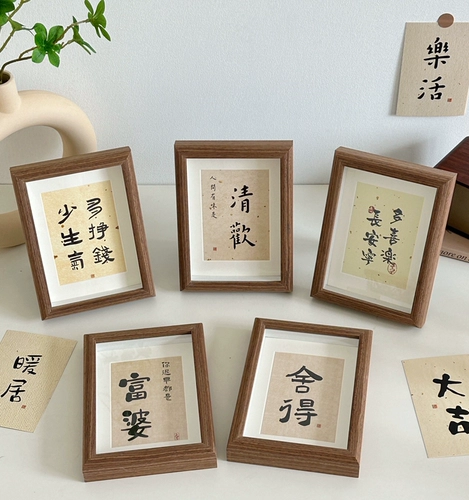 樂活
多挣錢
少生氣
人間有味是
清歡
多喜樂
長安寧
暖居
富婆
舍得
大吉